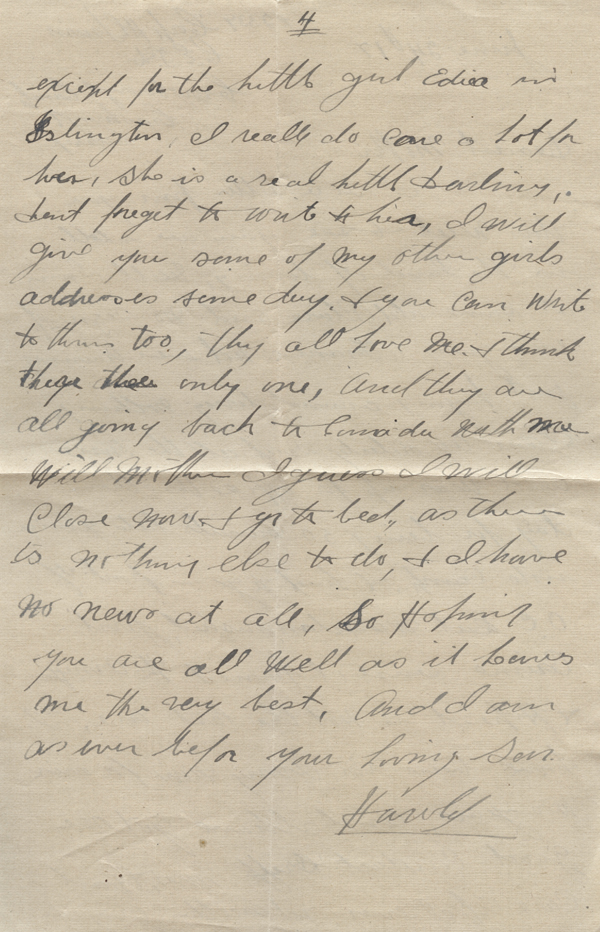 4
except for the little girl Edica in
Islington, I really do care a lot for
her, she is a real little darling,
dont forget to write to her, I will
give you some of my other girls
addresses some day, & you can write
to them too, they all love me & think
only one, And they are
all going back to Canada with me
Will Mother I guess I will
Close now & go to bed, as there
is nothing else to do, & I have
no news at all, So Hoping
you are all Well as it leaves
me the very best, And I am
as ever befor your loving Son
Harold